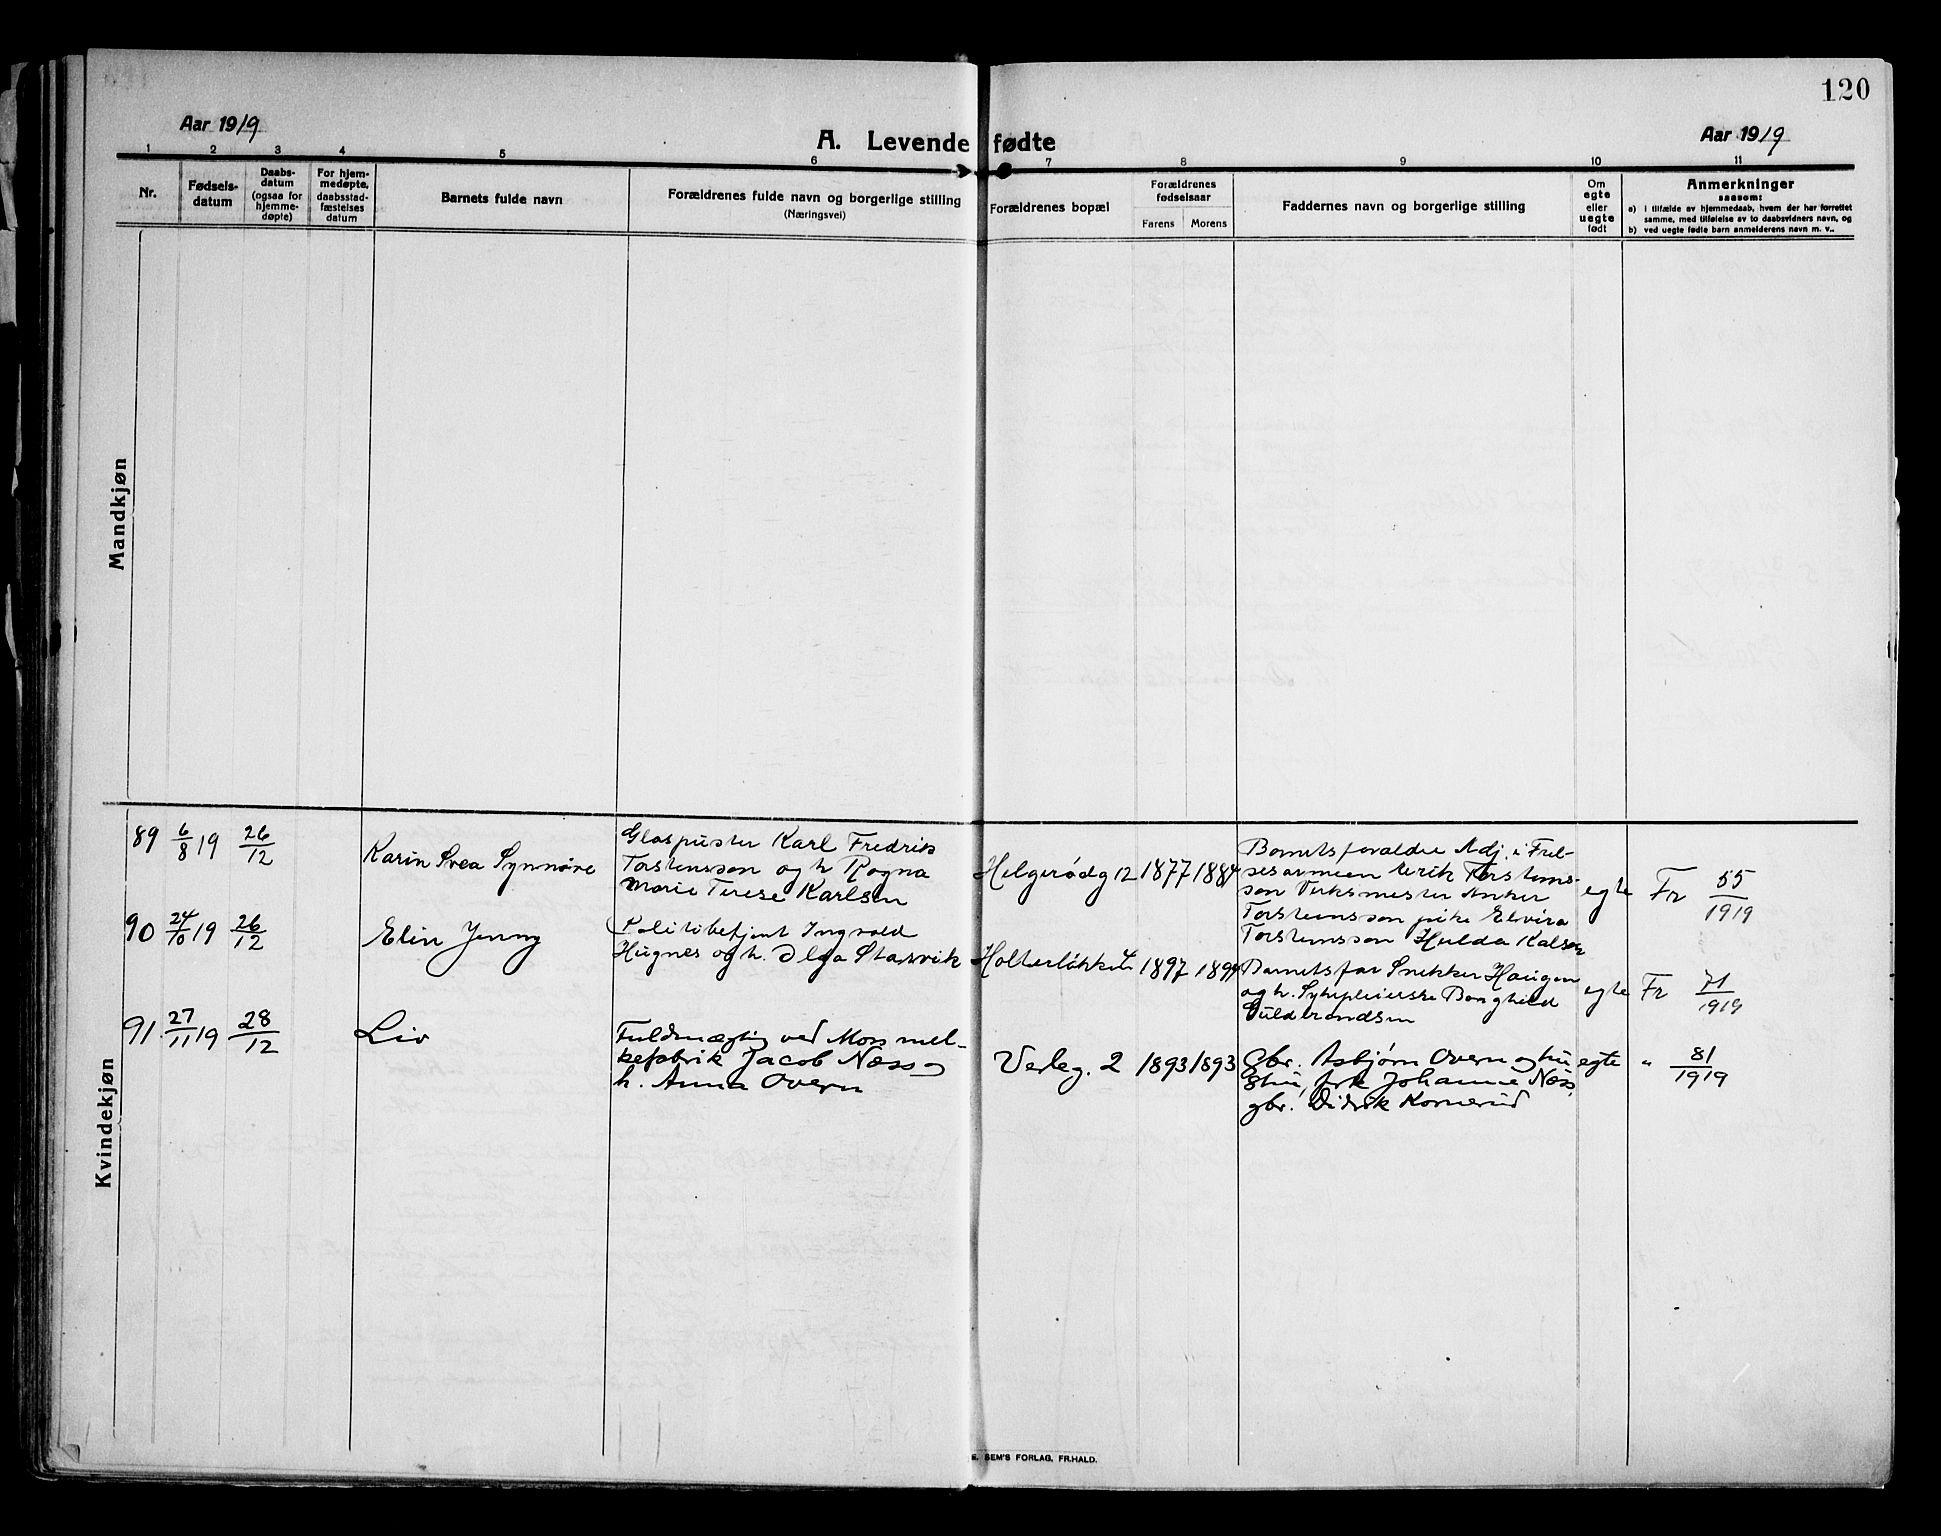 120
Aar 1919
A. Levende fødte
Aar 1919
1 2 3 4 5 6 7 8 9 10 11
Nr.
Fødsels-
datum
Daabs-
datum
(ogsaa for
hjemme-
døpte)
For hjem-
medøpte,
daabsstad-
fæstelses
datum
Barnets fulde navn
Forældrenes fulde navn og borgerlige stilling
(Næringsvei)
Forældrenes bopæl
Forældrenes
fødselsaar
Farens Morens
Faddernes navn og borgerlige stilling
Om
egte
eller
uegte
født
Anmerkninger
saasom:
a) i tilfælde av hjemmedaab, hvem der har forrettet
samme, med tilføielse av to daabsvidners navn, og
b) ved uegte fødte barn anmelderens navn m. v..
Mandkjøn
Kvindekjøn
89 6/8 19 26/12
Karin Svea Synnøve
Glaspuster Karl Fredrik
Torstensson og h Ragna
Marie Terese Karlsen
Helgerødg 12 1877 1884
Barnets forældre Adj. i Frel-
sesarmeen Erik Torstens-
son Verksmester Anker
Torstensson pike Elvira
Torstensson Hulda Kalsen
egte
Fr 55/1919
90 24/10 19 26/12
Elin Jenny
Politibetjent Ingvald
Hugnes og h. Olga Starvik
Holterløkka 1897
Barnets far Snekker Haugen
og h. Sykepleierske Borghild
Guldbrandsen
egte
Fr 71/1919
91. 27/11 19 28/12
Liv
Fuldmægtig ved Moss mel-
kefabrik Jacob Næss og
h. Anna Overn
Verleg. 2 1893 1893
Gbr. Asbjørn Overn og hu
stru, frk Johanne Næss,
gbr. Didrik Kornerud
egte
" 81/1919
E. SEM'S FORLAG, FR.HALD.